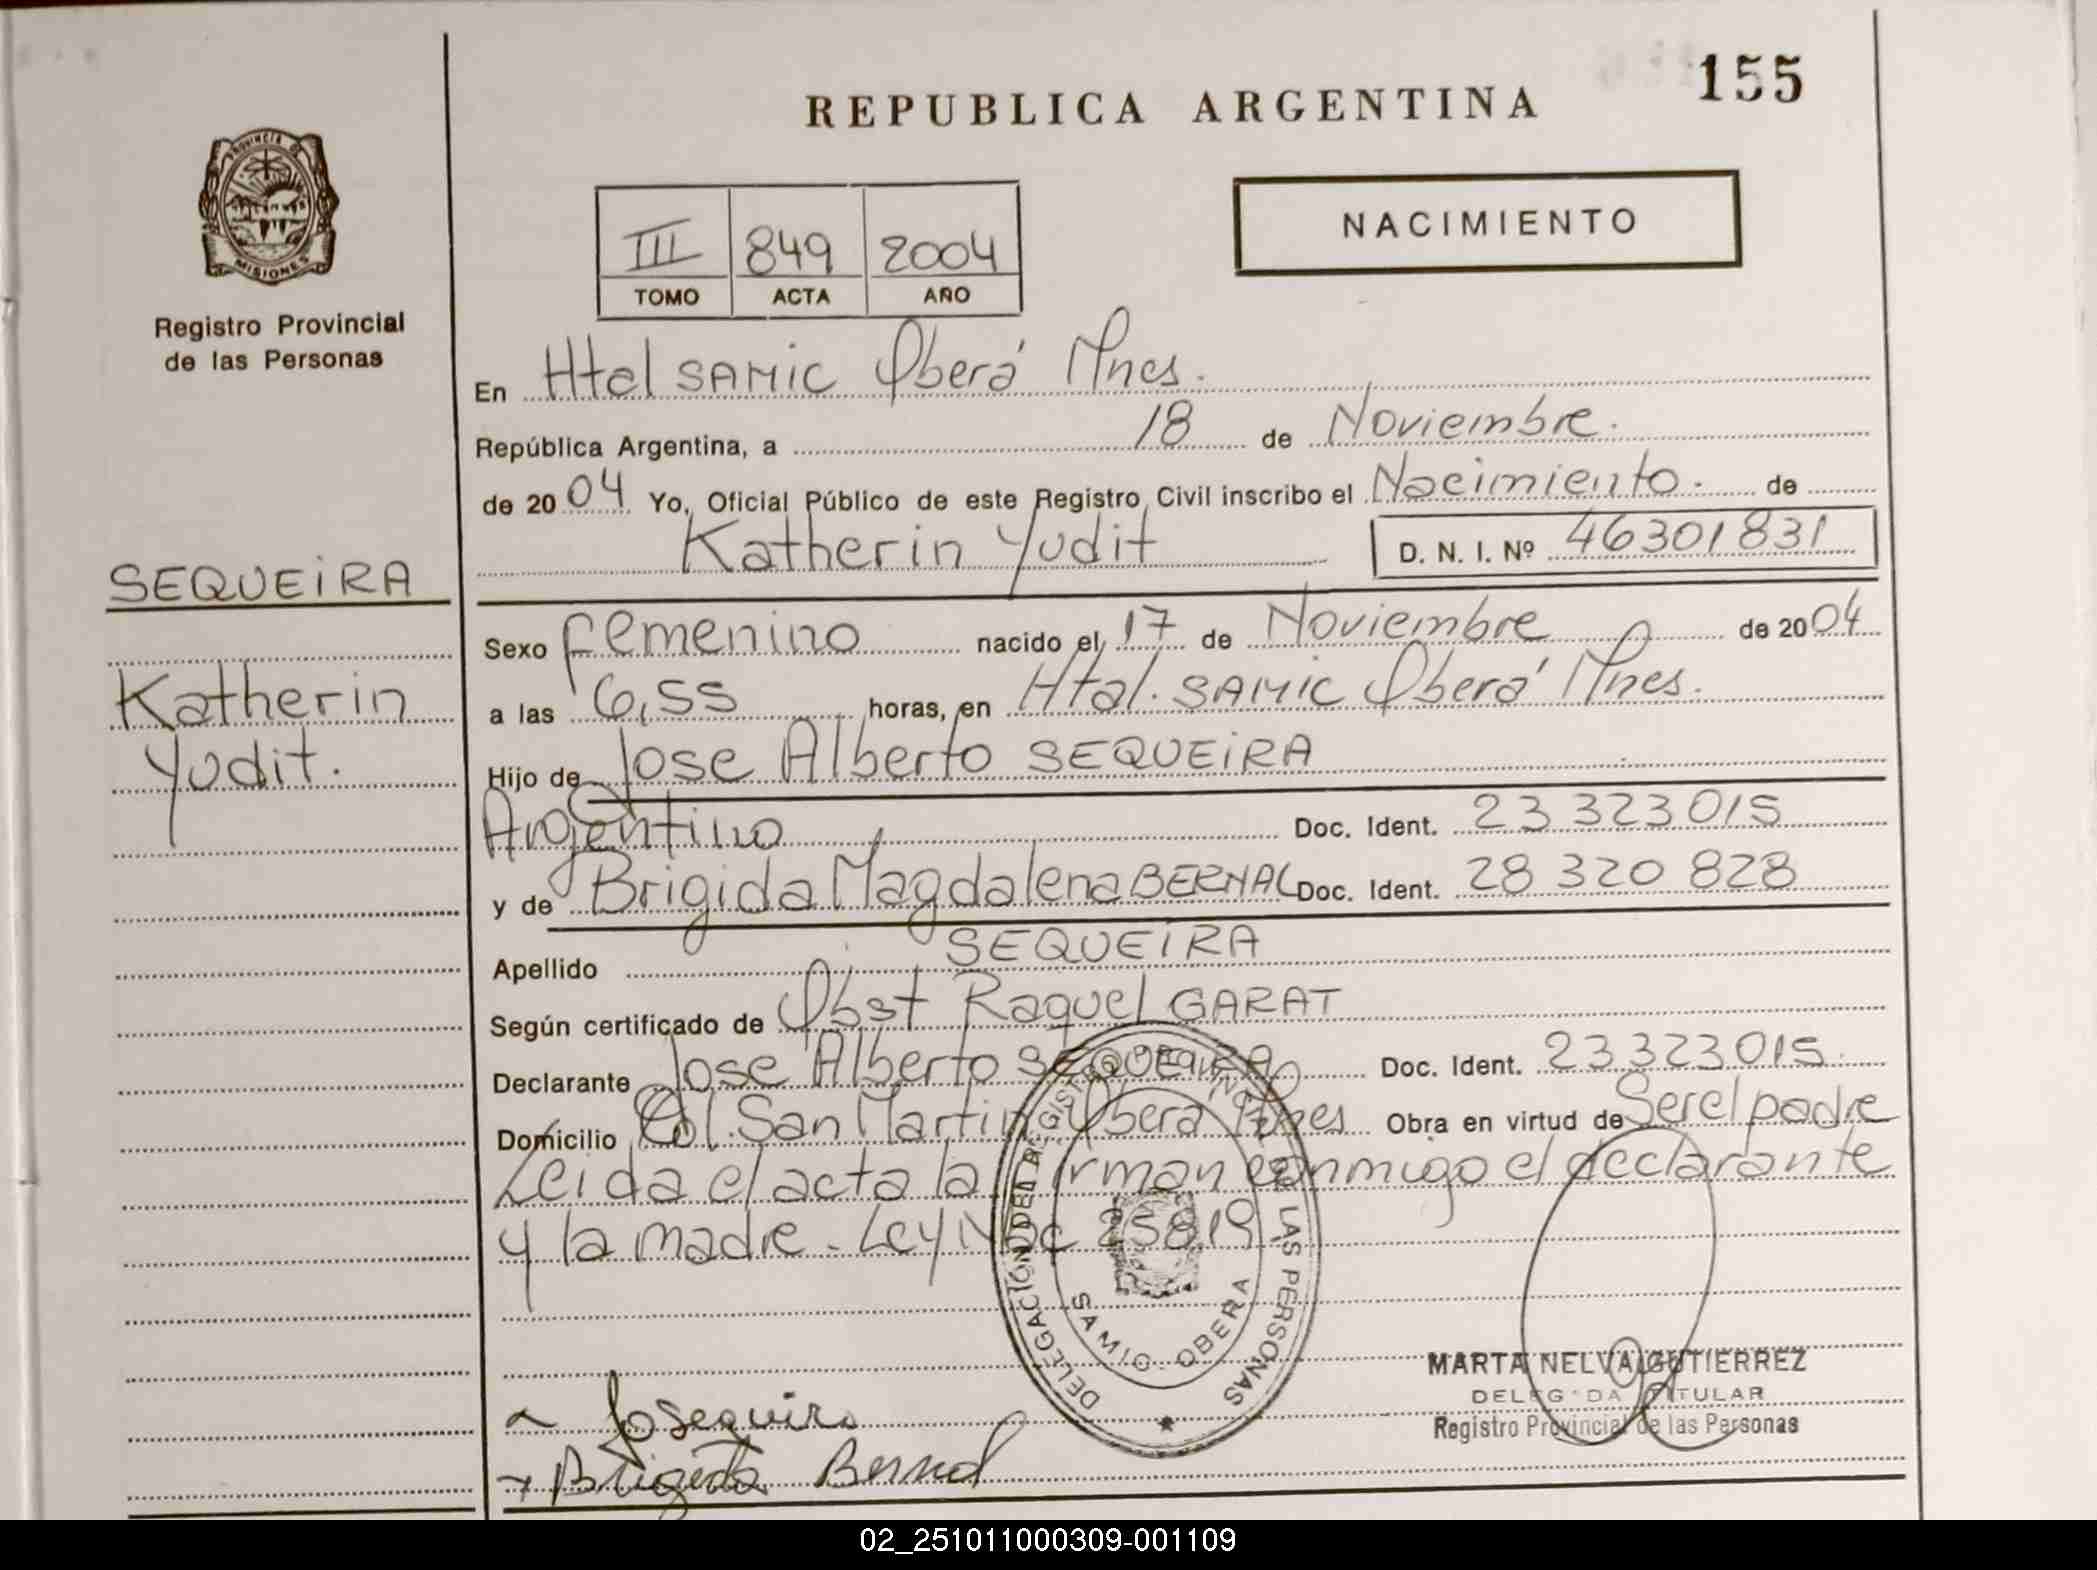 155
REPUBLICA ARGENTINA
PROVINCIA DE
MISIONES
Registro Provincial
de las Personas
NACIMIENTO
III 849 2004
TOMO ACTA AÑO
En Htal SAMIC Oberá Mnes.
República Argentina, a 18 de Noviembre.
de 2004 Yo, Oficial Público de este Registro Civil inscribo el Nacimiento. de
Katherin Yudit D. N. I. Nº 46301831
SEQUEIRA
Katherin
Yudit.
Sexo Femenino nacido el 17 de Noviembre de 2004
a las 6,55 horas, en Htal. SAMIC Oberá Mnes.
Hijo de Jose Alberto SEQUEIRA
Argentino Doc. Ident. 23 323 015
y de Brigida Magdalena BERNAL Doc. Ident. 28 320 828
Apellido SEQUEIRA
Según certificado de Obst Raquel GARAT
Declarante Jose Alberto SEQUEIRA Doc. Ident. 23 323 015
Domicilio Col. San Martin Oberá Mnes Obra en virtud de Ser el padre
Leida el acta la firman conmigo el declarante
y la madre. Ley Nac 25819
DELEGACION DEL REGISTRO PROVINCIAL DE LAS PERSONAS
SAMIC OBERA
MARTA NELVA GUTIERREZ
DELEGADA TITULAR
Registro Provincial de las Personas
Brigida Bernal
02_251011000309-001109